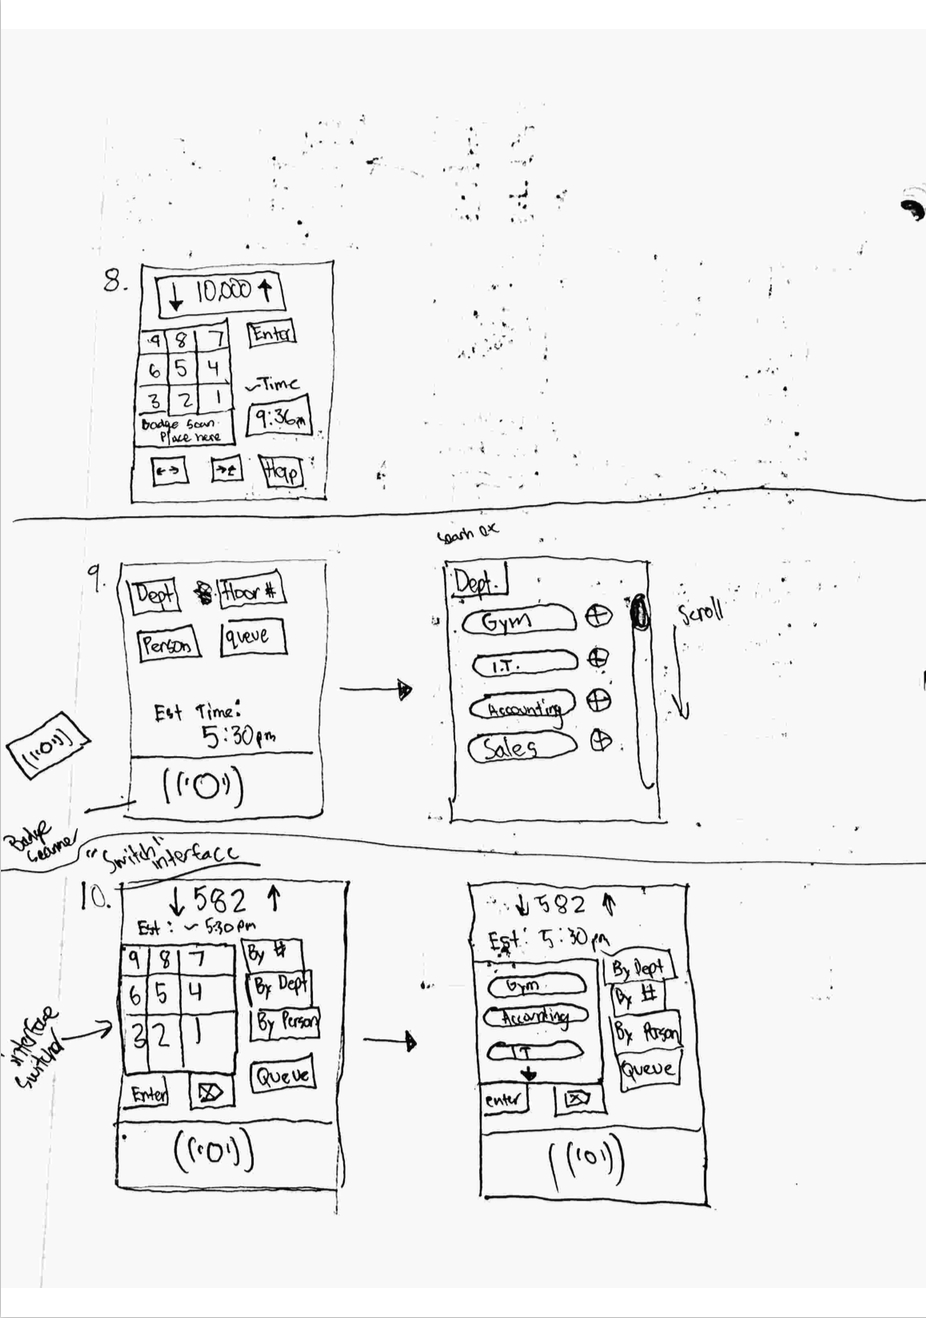 8.
↓ 10,000 ↑
9 8 7
6 5 4
3 2 1
Enter
~Time
9:36pm
Badge Scan
Place here
Help
Search ex
9.
Dept
Floor #
Person
queue
Est Time:
5:30pm
((·O·))
Badge
Scanner
Dept.
Gym
I.T.
Accounting
Sales
Scroll
"Switch"
interface
10.
↓ 582 ↑
Est: ~ 530pm
9 8 7
6 5 4
3 2 1
By #
By Dept
By Person
Queue
Enter
((·O·))
interface
Switched
↓ 582 ↑
Est: 5:30pm
Gym
Accounting
IT
By Dept
By #
By Person
Queue
enter
((·O·))